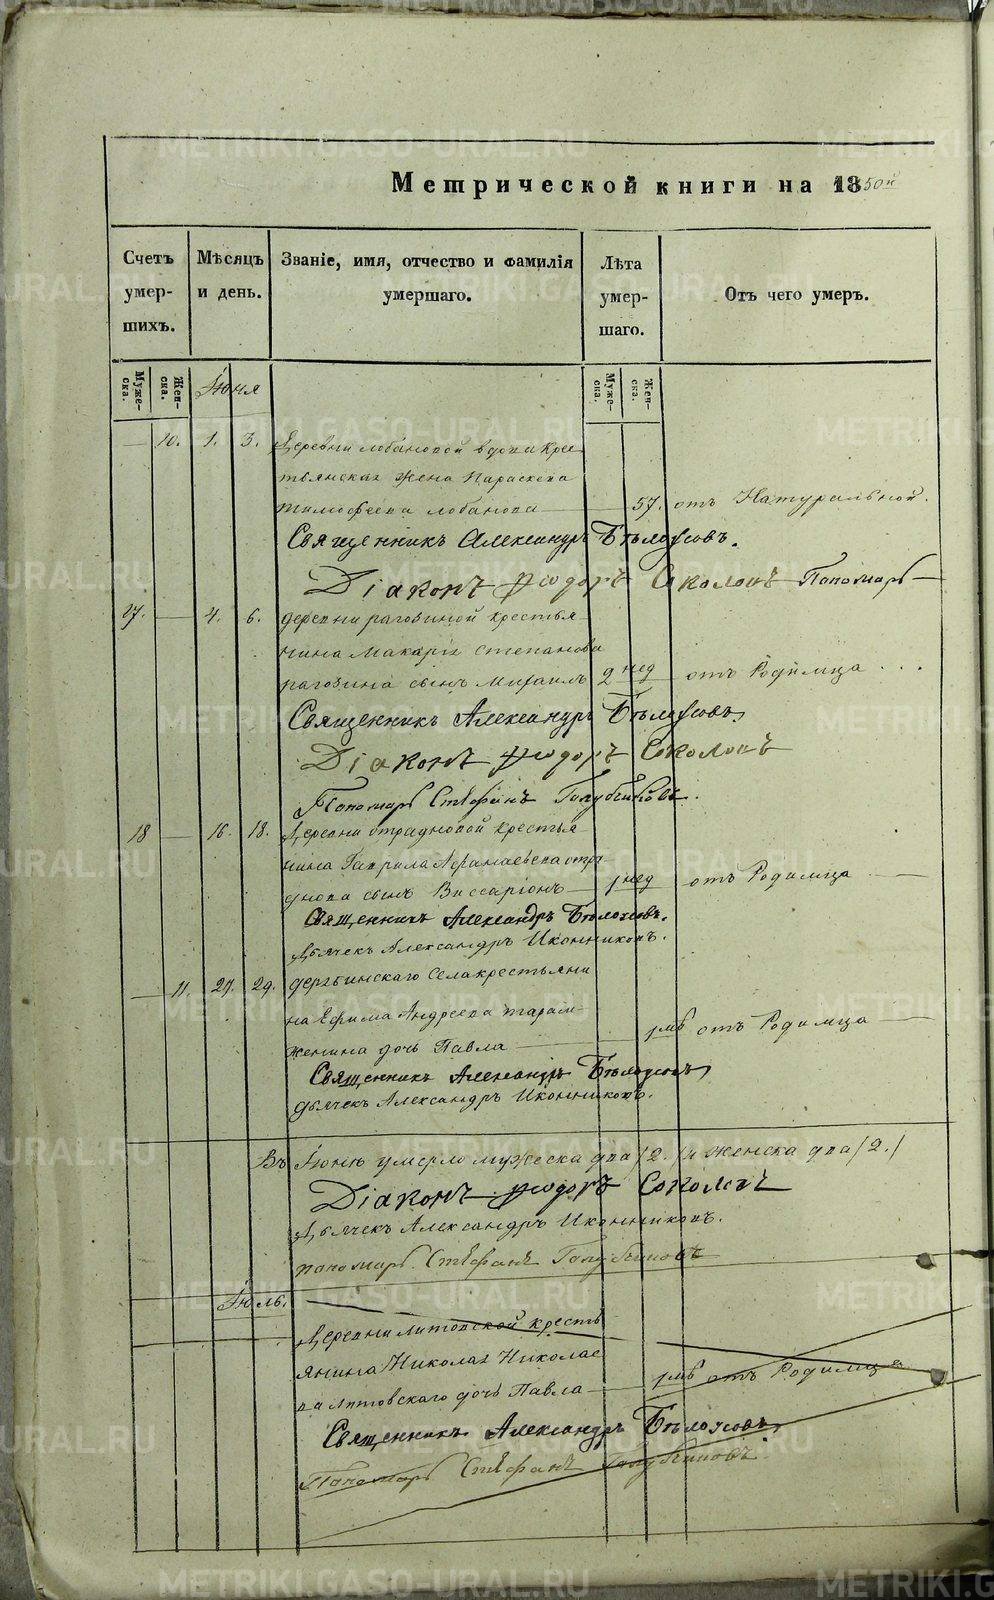 Метрической книги на 1850й
Счетъ умер-шихъ.
Мѣсяцъ и день.
Званіе, имя, отчество и фамилія умершаго.
Лѣта умер-шаго.
Отъ чего умеръ.
Муже-ска.
Жен-ска.
Муже-ска.
Жен-ска.
Іюня
10. 1. 3. Деревни лобановой вдова кре-
стьянская жена Параскева
тимофеева лобанова 57. отъ Натуральной.
Священникъ Александръ Бѣлоусовъ.
Діаконъ Феодоръ Соколовъ Пономарь
17. 4. 6. деревни рагозиной крестья-
нина Макарія степанова
рагозина сынъ Михаилъ 2 нед отъ Родимца
Священникъ Александръ Бѣлоусовъ.
Діаконъ Феодоръ Соколовъ
Пономарь Стефанъ Голубчиковъ.
18 16. 18. Деревни отрадновой крестья
нина Гаврила отра
днова сынъ Виссаріонъ 1 нед отъ Родимца
Священникъ Александръ Бѣлоусовъ.
Дьячекъ Александръ Иконниковъ.
11. 27. 29. села крестьяни
на Ефима Андреева
дочь Павла 1 мѣ отъ Родимца
Священникъ Александръ Бѣлоусовъ
Дьячекъ Александръ Иконниковъ.
Въ Іюнѣ умерло мужеска два /2./ и женска два /2./
Діаконъ Феодоръ Соколовъ
Дьячекъ Александръ Иконниковъ.
пономарь Стефанъ Голубчиковъ
Іюль.
Деревни литовской кресть
янина Николая Николае
ва литовскаго дочь Павла 1 мѣ отъ Родимца
Священникъ Александръ Бѣлоусовъ
Пономарь Стефанъ Голубчиковъ
METRIKI.GASO-URAL.RU